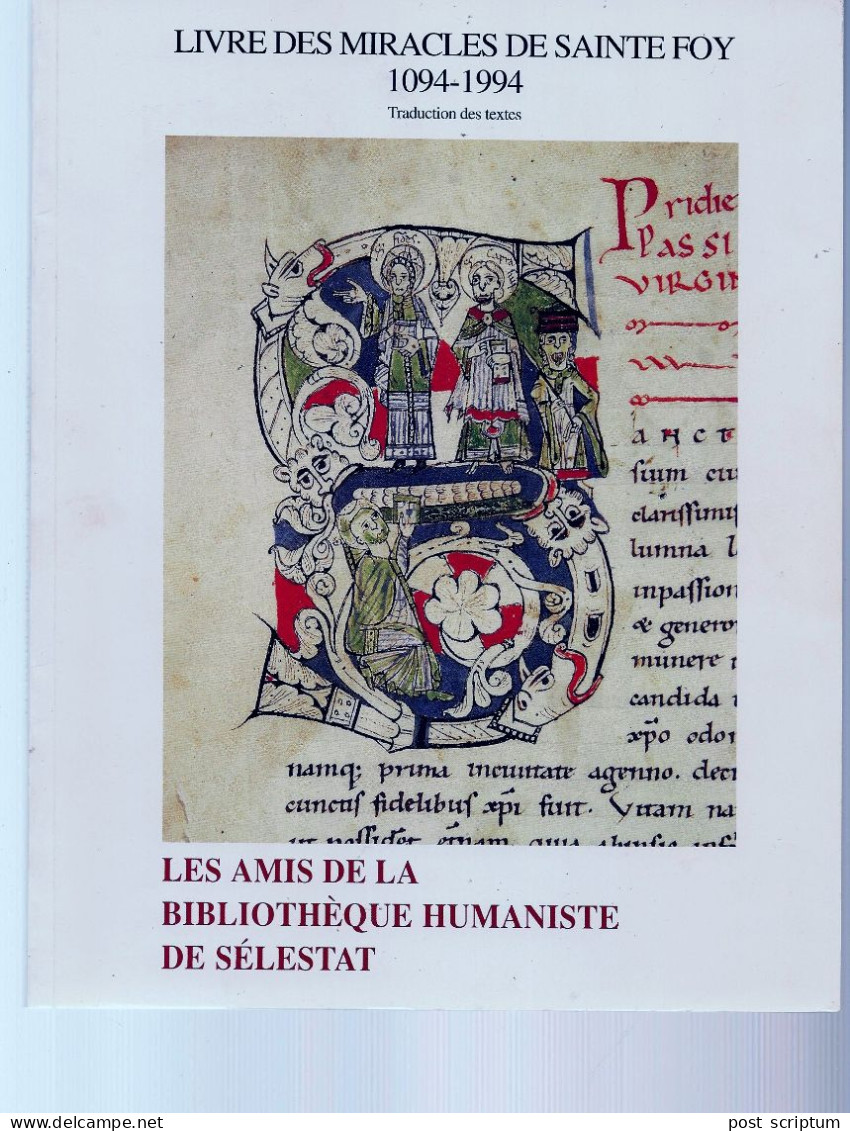 LIVRE DES MIRACLES DE SAINTE FOY
1094-1994
Traduction des textes
Pridie
Passi
VIRGIN
ANCT
sium cui
clarissimis
lumna
inpassion
& genero
munere
candida
xp̄o odor
namq; prima inciuitate agenno. deci
cunctis fidelibus xp̄i fuit. Vitam na
LES AMIS DE LA
BIBLIOTHÈQUE HUMANISTE
DE SÉLESTAT
DELCAMPE.NET
post_scriptum